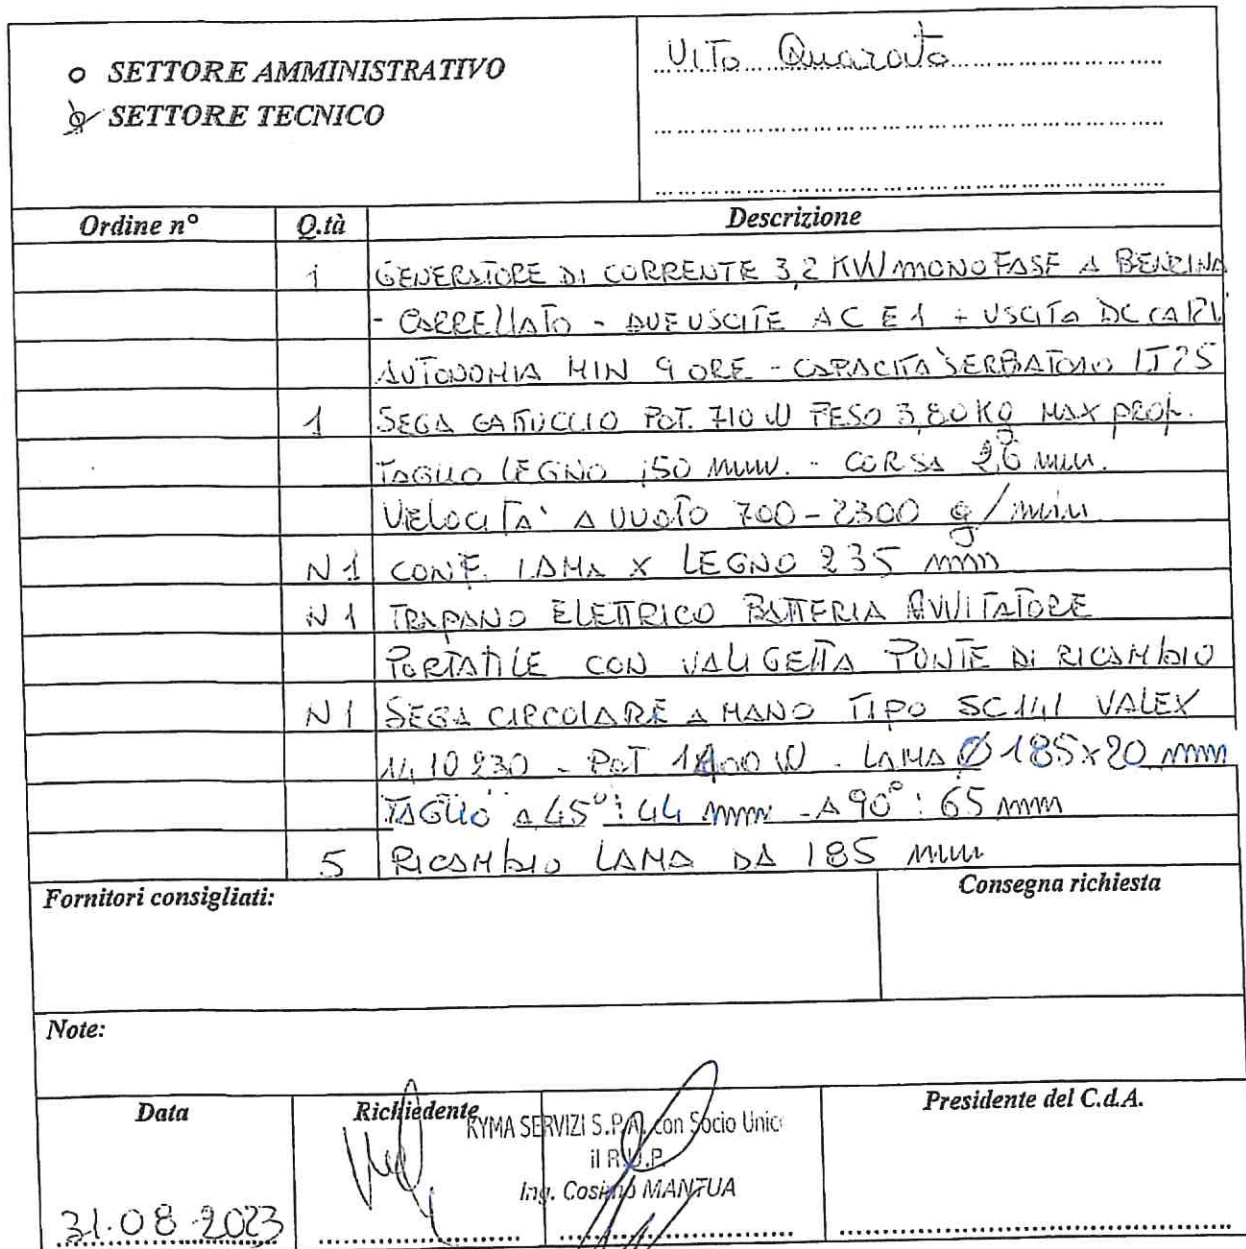 o SETTORE AMMINISTRATIVO
o SETTORE TECNICO
VITO Quarato
Ordine n° Q.tà Descrizione
1 GENERATORE DI CORRENTE 3,2 KW MONOFASE A BENZINA
- CARRELLATO - DUE USCITE AC E 1 + USCITA DC
AUTONOMIA MIN 9 ORE - CAPACITA' SERBATOIO LT 25
1 SEGA GATTUCCIO POT. 710 W PESO 3,80 KG MAX PROF.
TAGLIO LEGNO 150 mm. - CORSA mm.
VELOCITA' A VUOTO 700-2300 g/min
N 1 CONF. LAMA X LEGNO 235 mm
N 1 TRAPANO ELETTRICO BATTERIA AVVITATORE
PORTATILE CON VALIGETTA PUNTE DI RICAMBIO
N 1 SEGA CIRCOLARE A MANO TIPO SC141 VALEX
1410930 - POT W - LAMA Ø 185x20 mm
TAGLIO A 45° : 44 mm - A 90° : 65 mm
5 RICAMBIO LAMA DA 185 mm
Fornitori consigliati: Consegna richiesta
Note:
Data Richiedente Presidente del C.d.A.
KYMA SERVIZI S.P.A. con Socio Unic
il R.U.P.
Ing. Cosimo MANTUA
31.08.2023